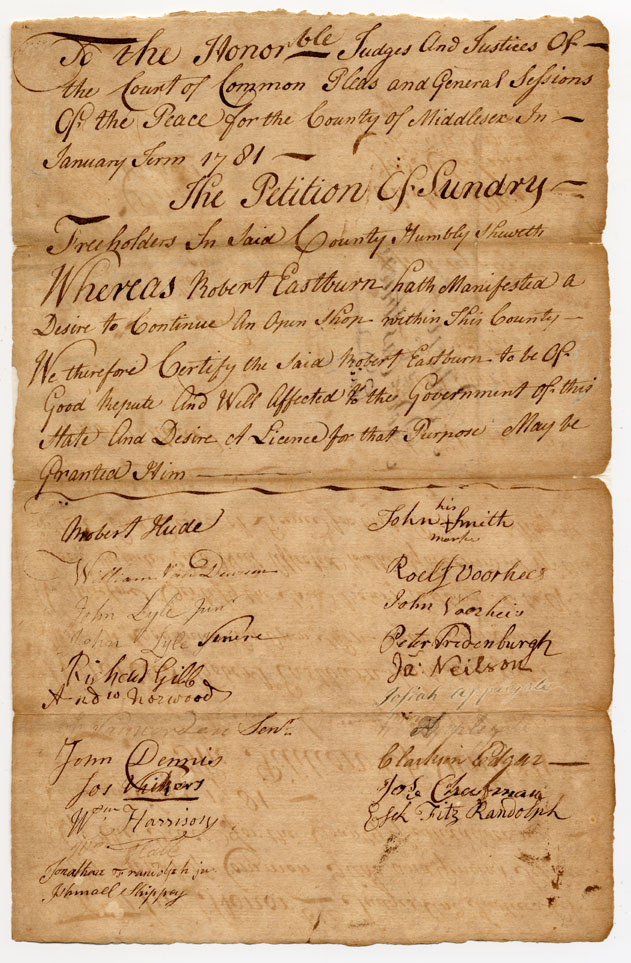 To the Honorble Judges And Justices Of
the Court of Common Pleas and General Sessions
Of the Peace for the County of Middlesex In
January Term 1781
The Petition Of Sundry
Freeholders In Said County Humbly Sheweth
Whereas Robert Eastburn hath Manifested a
Desire to Continue An Open Shop within This County
We therefore Certify the Said Robert Eastburn to be Of
Good Repute And Well Affected to the Government of this
State And Desire A Licence for that Purpose May be
Granted Him
Robert Hude
William Van Deursen
John Lyle Junr
John Lyle Senere
Richard Gibb
And1o Norwood
Senr
John Dennis
Jos Vickers
Wm Harrison
Jonathan F randolph jr
Ishmael Shippey
John his Smith
mark
Roelf Voorhees
John Voorheis
Peter Vredenburgh
Ja: Neilson
Josiah
Clarkson Edgar
Chapman
Esek Fitz Randolph